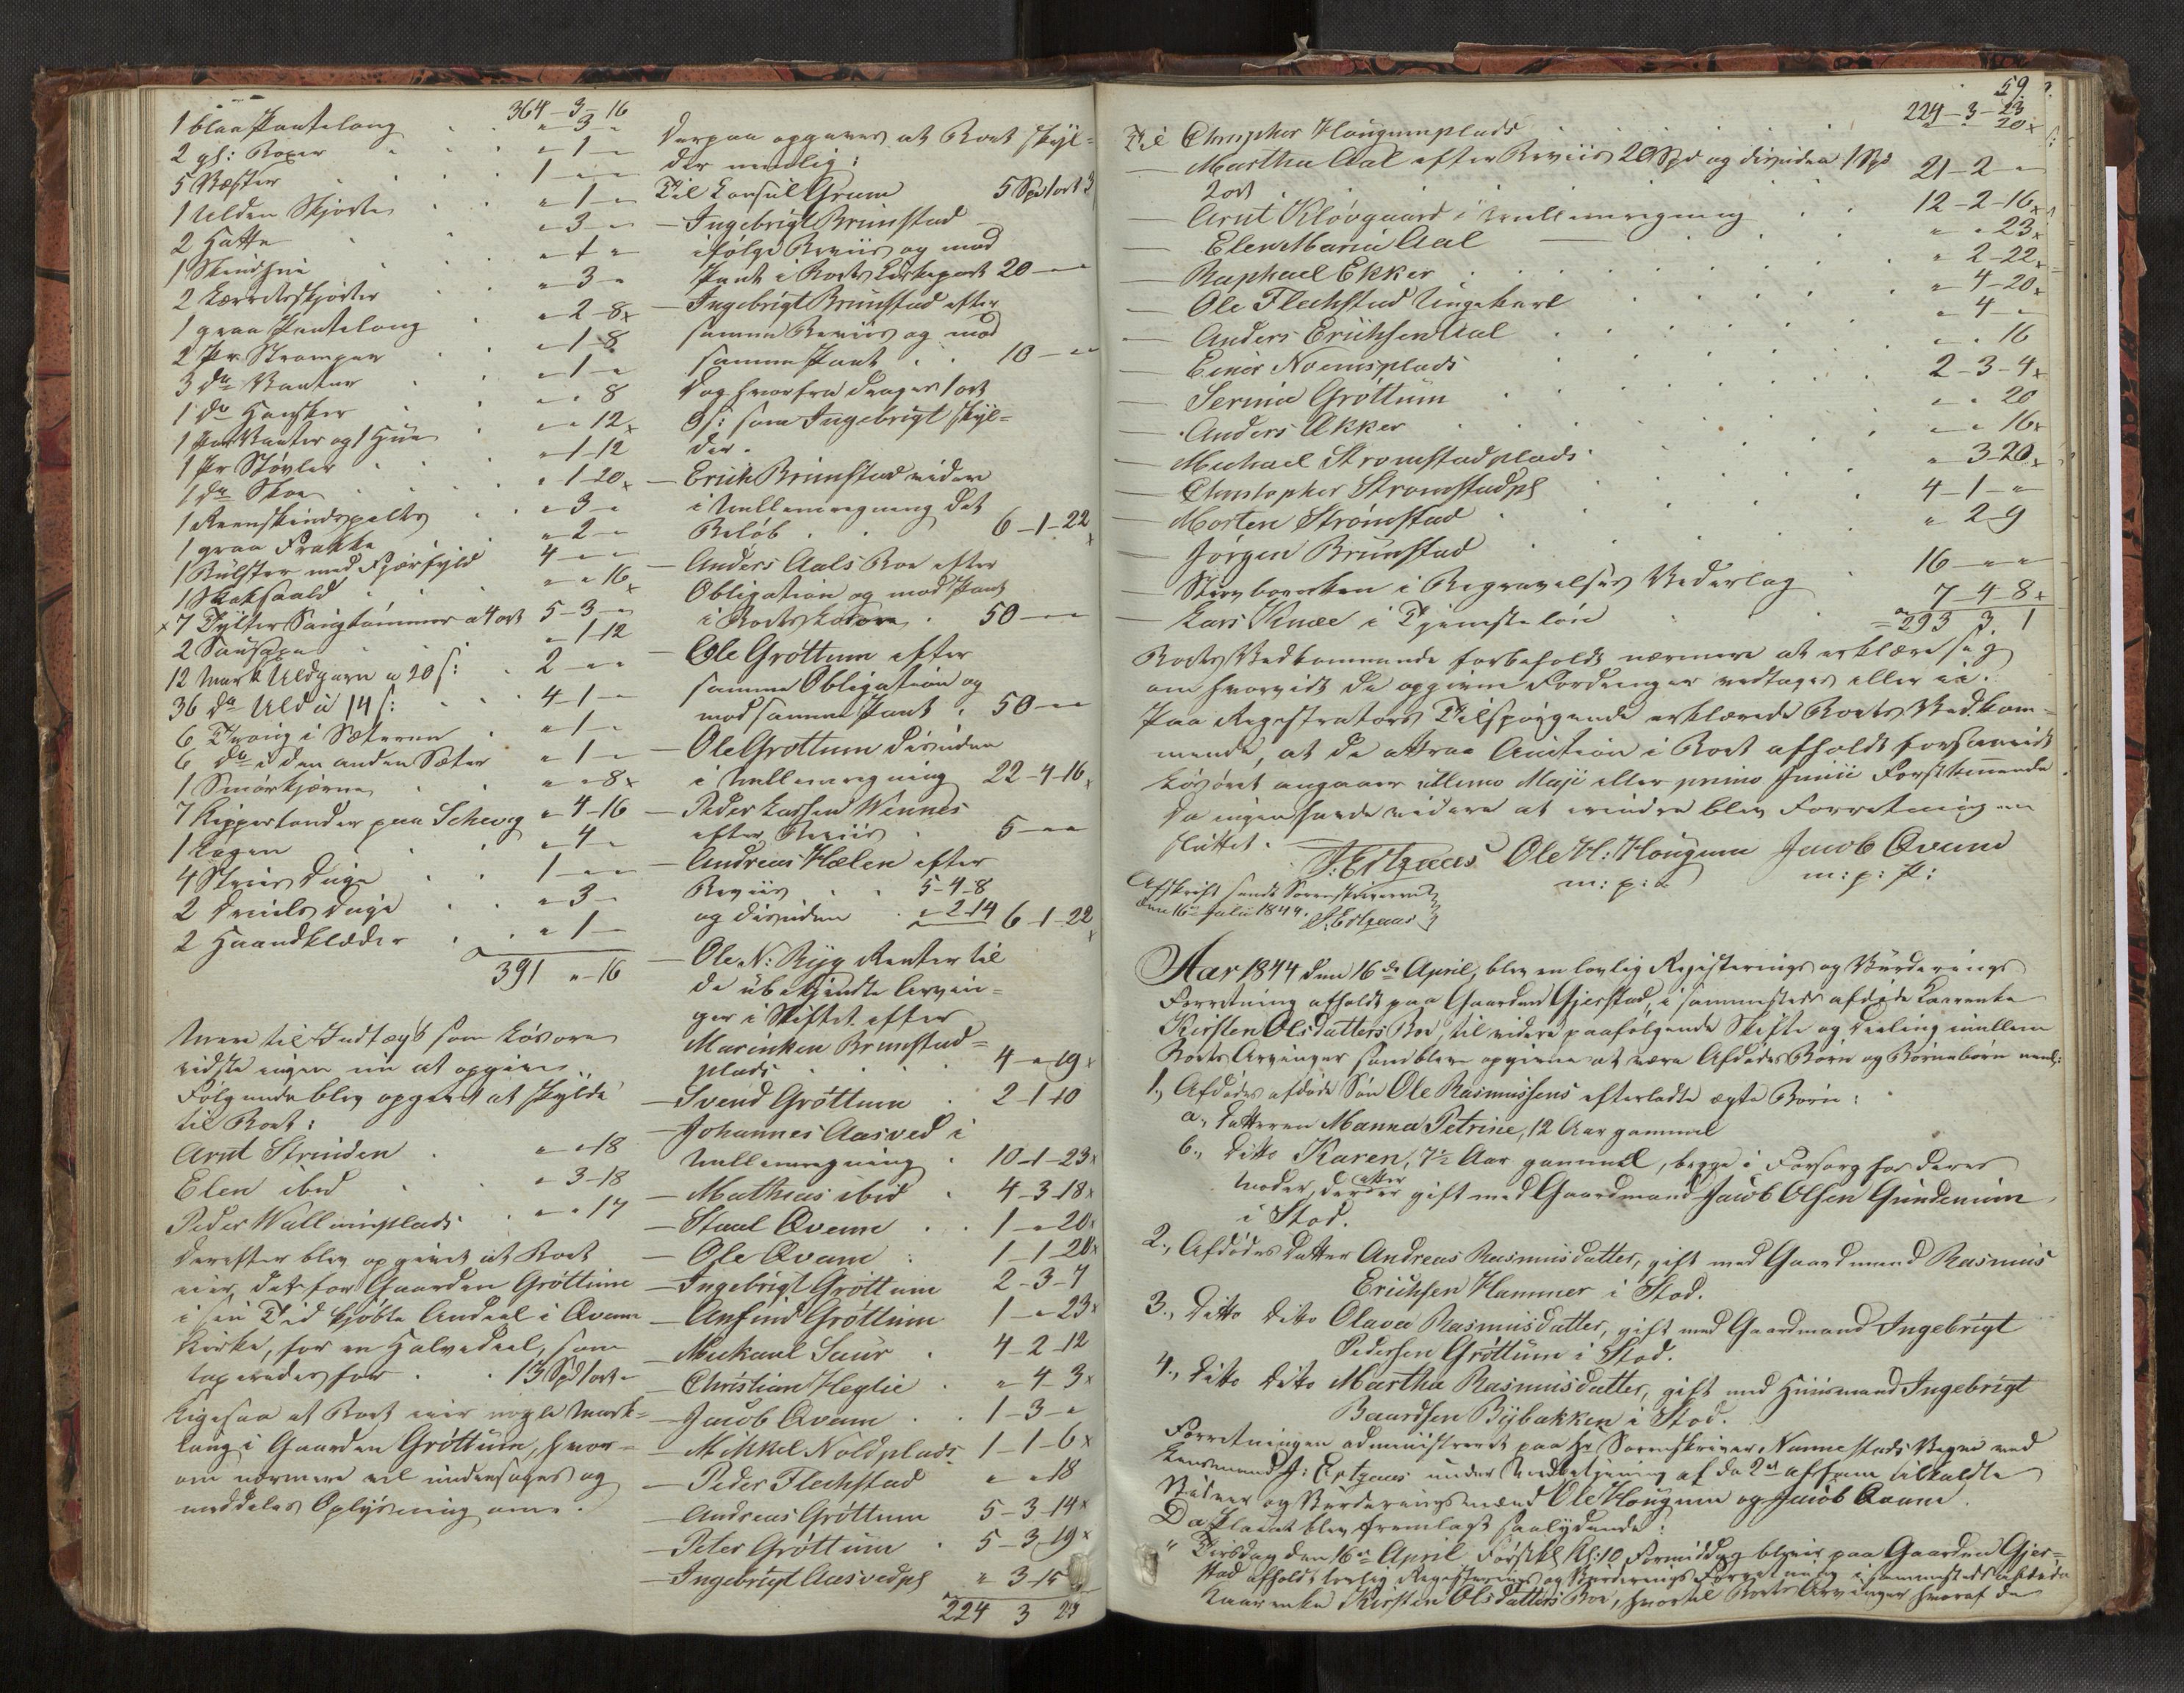 364-3-16
1 blaa Pantelong " 3 "
2 gl: Boxer " 1 "
5 Væster 1 " "
1 Ulden Skjorte " 1 "
2 Hatte " 3 "
1 Skindhue " 1 "
2 Lærretsskjorter " 3 "
1 graa Pantelong " 2-8
2 Pr Strømper " 1-8
3 do Vanter " 1 "
1 do Hansker " " 8
1 Par Vanter og 1 Hue " " 12
1 Pr Støvler " 1-12
1 do Skoe " 1-20
1 Reenskindspelts " 3 "
1 graa Frakke " 2 "
1 Bülster med Fjærfyld 4 " "
1 Skaksaald " " 16
7 Tylter Saugtømmer a 4 ort 5-3 "
2 Saugøxe " 1-12
12 Mark Uldgarn a 20 s: 2 " "
36 do Uld a 14 s: 4-1 "
6 Traug i Sæteren " 1 "
6 do i den anden Sæter " 1 "
1 Smørkjærne " " 8
7 Kippertønder paa Scheug " 4-16
1 Lagen " 4 "
4 Stuvs Duge 1 " "
2 Dreiels Duge " 3 "
2 Haandklæder " 1 "
391 " 16
Mere til Indtægt som Løsøre
vidste ingen nu at opgive
Følgende blev opgivet at skylde
til Boet:
Arnt Strinden " " 18
Elen ibid " 3-18
Peder Wallumplads " " 17
Derefter blev opgivet at Boet
eier det for Gaarden Grøttüm
i sin Tid kjøbte Andeel i Qvam
Kirke, for en Halvedeel, som
taxeredes for 13 Spd 1 ort "
Ligesaa at Boet eier nogle Mark-
laug i Gaarden Grøttüm, hvor-
om nærmere vil undersøges og
meddeles Oplysning om.
Derpaa opgaves at Boet skyl-
der nemlig:
Til Consul Gram 5 Spd 1 ort 3
— Ingebrigt Brumstad
ifølge Beviis og mod
Pant i Boets Kirkepart 20 " "
— Ingebrigt Brumstad efter
samme Beviis og mod
samme Pant 10 " "
dog hvorfra drages 1 ort
9 s: som Ingebrigt skyl-
der.
— Erich Brumstad videre
i Mellemregning det
Beløb 6-1-22
— Anders Aals Boe efter
Obligation og mod Pant
i Boets Løsøre 50 " "
— Ole Grøttum efter
samme Obligation og
mod samme Pant 50 " "
— Ole Grøttum desuden
i Mellemregning 22-4-16
— Peder Larsen Wennes
efter Beviis 5 " "
— Andreas Hælen efter
Beviis 5-4-8
og desuden " 2-14 6-1-22
— Ole N: Ryg Renter til
de übekjendte Arvin-
ger i Skiftet efter
Marinken Brumstad-
plads 4 " 19
— Svend Grøttum 2-1-10
— Johannes Aasved i
Mellemregning 10-1-23
— Mathias ibid 4-3-18
— Staal Qvam 1 " 20
— Ole Qvam 1-1-20
— Ingebrigt Grøttum 2-3-7
— Anfind Grøttum 1 " 23
— Mickael Saur 4-2-12
— Christian Heglie " 4 3
— Jacob Qvam 1-3 "
— Mikkel Noldplads 1-1-6
— Peder Flechstad " " 18
— Andreas Grøttum 5-3-14
— Peter Grøttum 5-3-19
— Ingebrigt Aasvedpl " 3-15
224 3 23
59
224-3-23
Til Christopher Haugumplads 20
— Martha Aal efter Beviis 20 Spd og desuden 1 Spd
2 ort 21-2 "
— Arnt Kløvgaard i Mellemregning 12-2-16
— Elen Maria Aal " " 23
— Raphael Ekker " 2-22
— Ole Flechstad Ungekarl " 4-20
— Anders Erichsen Aal " 4 "
— Einer Noemsplads " " 16
— Serina Grøttum 2-3-4
— Anders Ekker " " 20
— Michael Strømstadplads " " 16
— Christopher Strømstadpl " 3-20
— Morten Strømstad 4-1 "
— Jørgen Brumstad " 2 9
— Stervboenken i Begravelses Vederlag 16 " "
— Lars Knæe i Tjenesteløn 7-4-8
293 3 1
Boets Vedkommende forbeholdt nærmere at erklære sig
om hvorvidt de opgivne Fordringer vedtages eller ei.
Paa Registrators Tilspørgende erklærede Boets Vedkom-
mende, at de attraa Auction i Boet afholdt forsaavidt
Løsøret angaaer ultimo Maji eller primo Junii Førstkommende
Da ingen havde videre at erindre blev Forretningen
sluttet.
J: Ertzaas Ole H: Haugum Jacob Qvam
m: p: P: m: p: P:
Afskrift sendt Sorenskriveren
den 16de Julii 1844. J. Ertzaas
Aar 1844 den 16de April, blev en lovlig Registerings og Vurderings
Forretning afholdt paa Gaarden Gjerstad, i sammesteds afdøde Kaarenke
Kirsten Olsdatters Boe til videre paafølgende Skifte og Deeling imellem
Boets Arvinger som bleve opgivne at være Afdødes Børn og Børnebørn nem:
1., Afdødes afdøde Søn Ole Rasmussens efterladte ægte Børn:
a., Datteren Manna Petrine, 12 Aar gammel
b., Ditto Karen, 7½ Aar gammel, begge i Forsorg hos deres
Moder, der atter er gift med Gaardmand Jacob Olsen Gundenüm
i Stod.
2., Afdødes Datter Andreas Rasmusdatter, gift med Gaardmand Rasmus
Erichsen Hammer i Stod.
3., Ditto Dito Olava Rasmusdatter, gift med Gaardmand Ingebrigt
Pedersen Grøttüm i Stod.
4., Dito Dito Martha Rasmusdatter, gift med Huusmand Ingebrigt
Baardsen Bybakken i Stod.
Forretningen administreret paa Hr Sorenskriver Nannestads Vegne ved
Lensmand J: Ertzaas under Medbetjening af de 2de af ham tilkaldte
Vidner og Vurderingsmænd Ole Haugum og Jacob Qvam.
Da Placat blev fremlagt saalydende:
" Tirsdag den 16de April Førstk Kl: 10 Formiddag bliver paa Gaarden Gjer-
stad afholdt lovlig Registerings og Vurderings Forretning i sammesteds afdøde
Kaarenke Kirsten Olsdatters Boe, hvortil Boets Arvinger hvoraf de